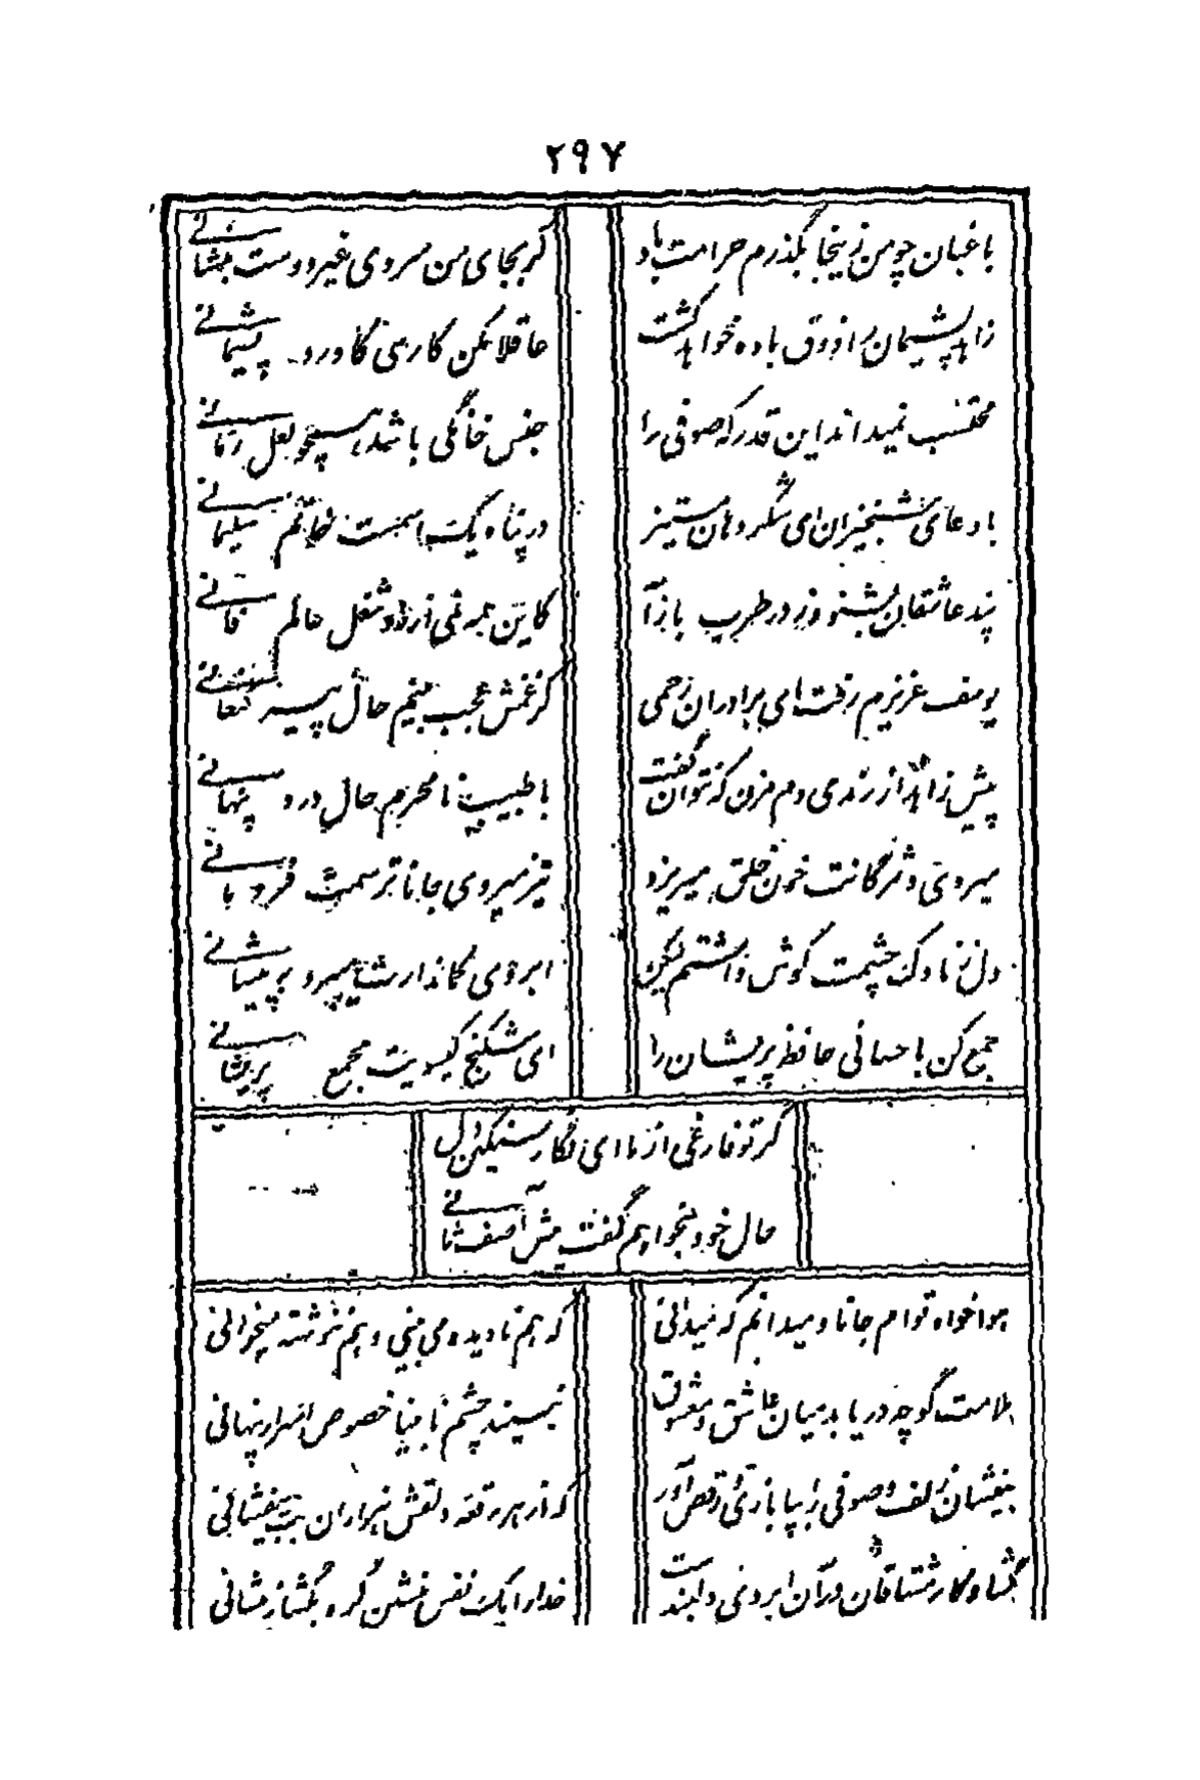 ۲۹۷
باغبان چو من زینجا بگذرم حرامت باد
گر بجای من سروی غیر دوست بنشانے
زاهد پشیمان را ذوق باده خواهد کشت
عاقلا مکن کاری کاورد پشیمانے
محتسب نمیداند این قدر که صوفی را
جنس خانگی باشد همچو لعل رمانے
با دعای شبخیزان ای شکر دهان مستیز
در پناه یک اسمست خاتم سلیمانے
پند عاشقان بشنو وز در طرب بازآ
کاین همه نمی ارزد شغل عالم فانے
یوسف عزیزم رفت ای برادران رحمی
کز غمش عجب بینم حال پیر کنعانے
پیش زاهد از رندی دم مزن که نتوان گفت
با طبیب نامحرم حال درد پنهانے
میروی و مژگانت خون خلق میریزد
تیز میروی جانا ترسمت فرو مانے
دل ز ناوک چشمت گوش داشتم لیکن
ابروی کماندارت میبرد به پیشانے
جمع کن باحسانی حافظ پریشان را
ای شکنج گیسویت مجمع پریشانے
گر تو فارغی از ما ای نگار سنگین دل
حال خود بخواهم گفت پیش آصف ثانے
هواخواه توام جانا و میدانم که میدانی
که هم نادیده می بینی و هم ننوشته میخوانی
ملامت گو چه دریابد میان عاشق و معشوق
نبیند چشم نابینا خصوص اسرار پنهانی
بیفشان زلف و صوفی را بپا بازی و رقص آور
که از هر رقعه دلقش هزاران بت بیفشانی
گشاد کار مشتاقان در آن ابروی دلبندست
خدا را یک نفس بنشین گره بگشا ز پیشانی